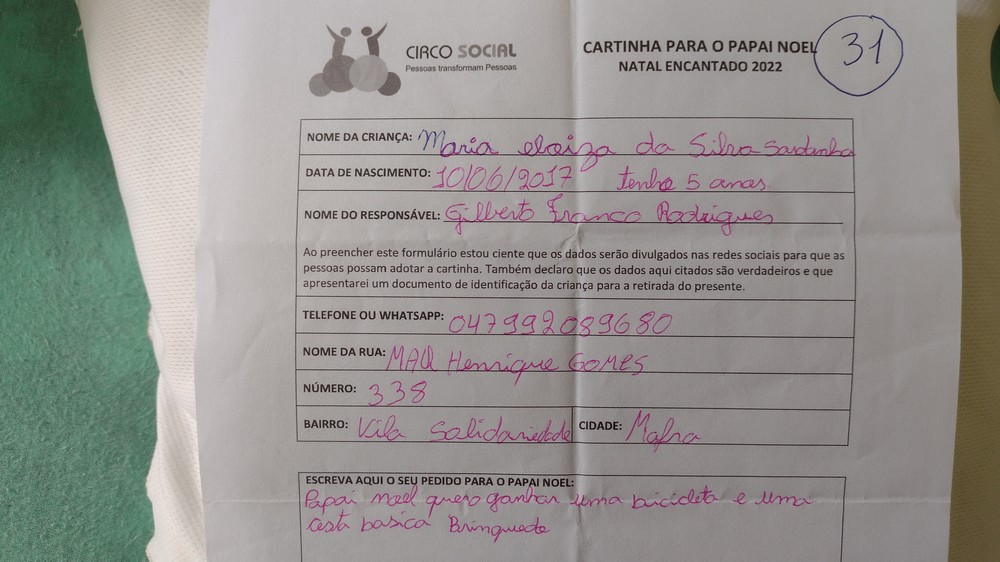 CIRCO SOCIAL
Pessoas transformam Pessoas
CARTINHA PARA O PAPAI NOEL
NATAL ENCANTADO 2022
31
NOME DA CRIANÇA: Maria eloiza da Silva Sardanha
DATA DE NASCIMENTO: 10/06/2017 tenho 5 anos
NOME DO RESPONSÁVEL: Gilberto Franco Rodrigues
Ao preencher este formulário estou ciente que os dados serão divulgados nas redes sociais para que as
pessoas possam adotar a cartinha. Também declaro que os dados aqui citados são verdadeiros e que
apresentarei um documento de identificação da criança para a retirada do presente.
TELEFONE OU WHATSAPP: 047992089680
NOME DA RUA: Henrique GOMES
NÚMERO: 338
BAIRRO: Vila Solidariedade CIDADE: Mafra
ESCREVA AQUI O SEU PEDIDO PARA O PAPAI NOEL:
Papai noel quero ganhar uma bicicleta e uma
cesta basica Brinquedo